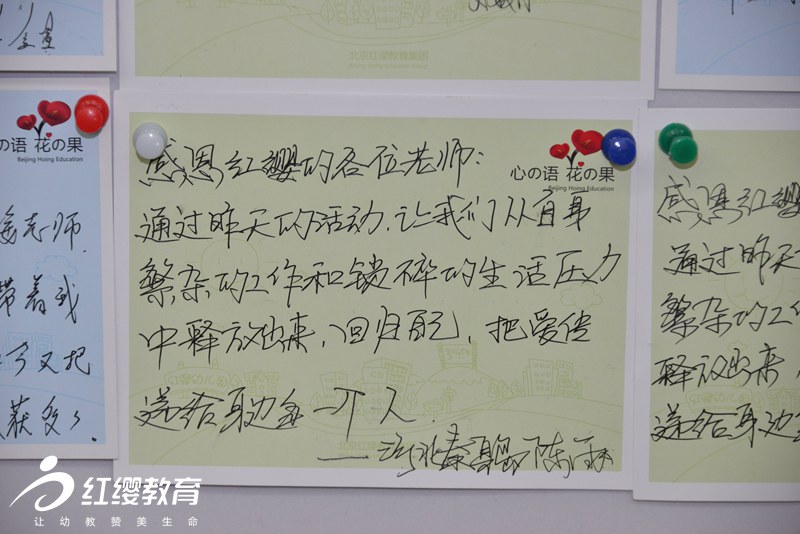 北京红缨教育集团
の语 花の果
Beijing Hoing Education
老师.
带着我
又把
获多多.
心の语 花の果
Beijing Hoing Education
感恩红缨的各位老师:
通过昨天的活动,让我们从自身
繁杂的工作和锁碎的生活压力
中释放出来,回归自己,把爱传
递给身边每一个人.
——河北秦皇岛 陈
感恩红缨
通过昨天
繁杂的工
释放出来,
递给身边
红缨教育
让幼教赞美生命